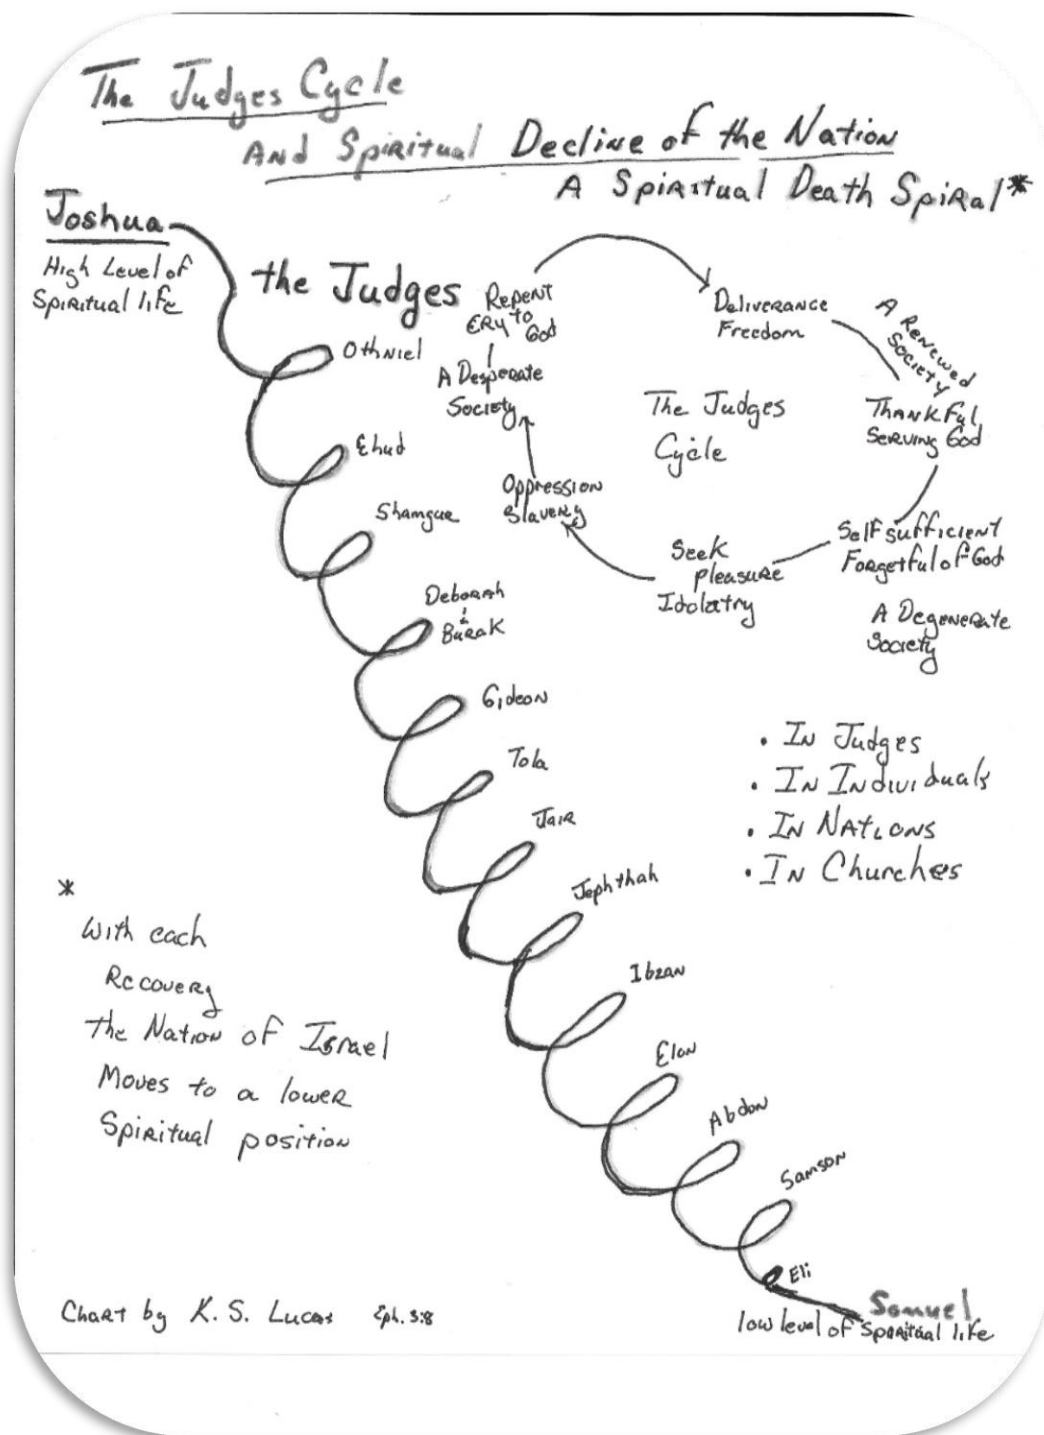 The Judges Cycle
And Spiritual Decline of the Nation
A Spiritual Death Spiral*
Joshua
High Level of
Spiritual life
the Judges
Othniel
Ehud
Shamgar
Deborah
&
Barak
Gideon
Tola
Jair
Jephthah
Ibzan
Elon
Abdon
Samson
Eli
Samuel
low level of spiritual life
Repent
Cry to
God
Deliverance
Freedom
A Renewed
Society
Thankful
Serving God
Self sufficient
Forgetful of God
A Degenerate
Society
Seek
pleasure
Idolatry
Oppression
Slavery
A Desperate
Society
The Judges
Cycle
• In Judges
• In Individuals
• In Nations
• In Churches
*
With each
Recovery
the Nation of Israel
Moves to a lower
Spiritual position
Chart by K. S. Lucas Eph. 3:8